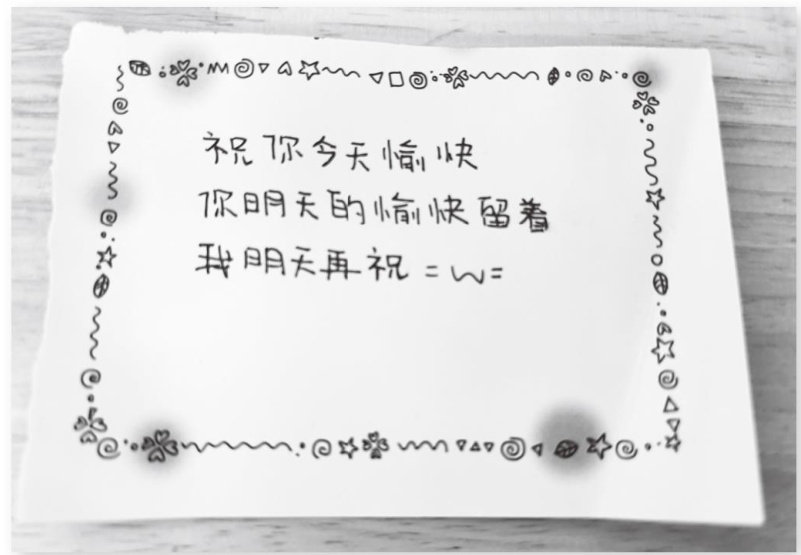 祝你今天愉快
你明天的愉快留着
我明天再祝 =w=